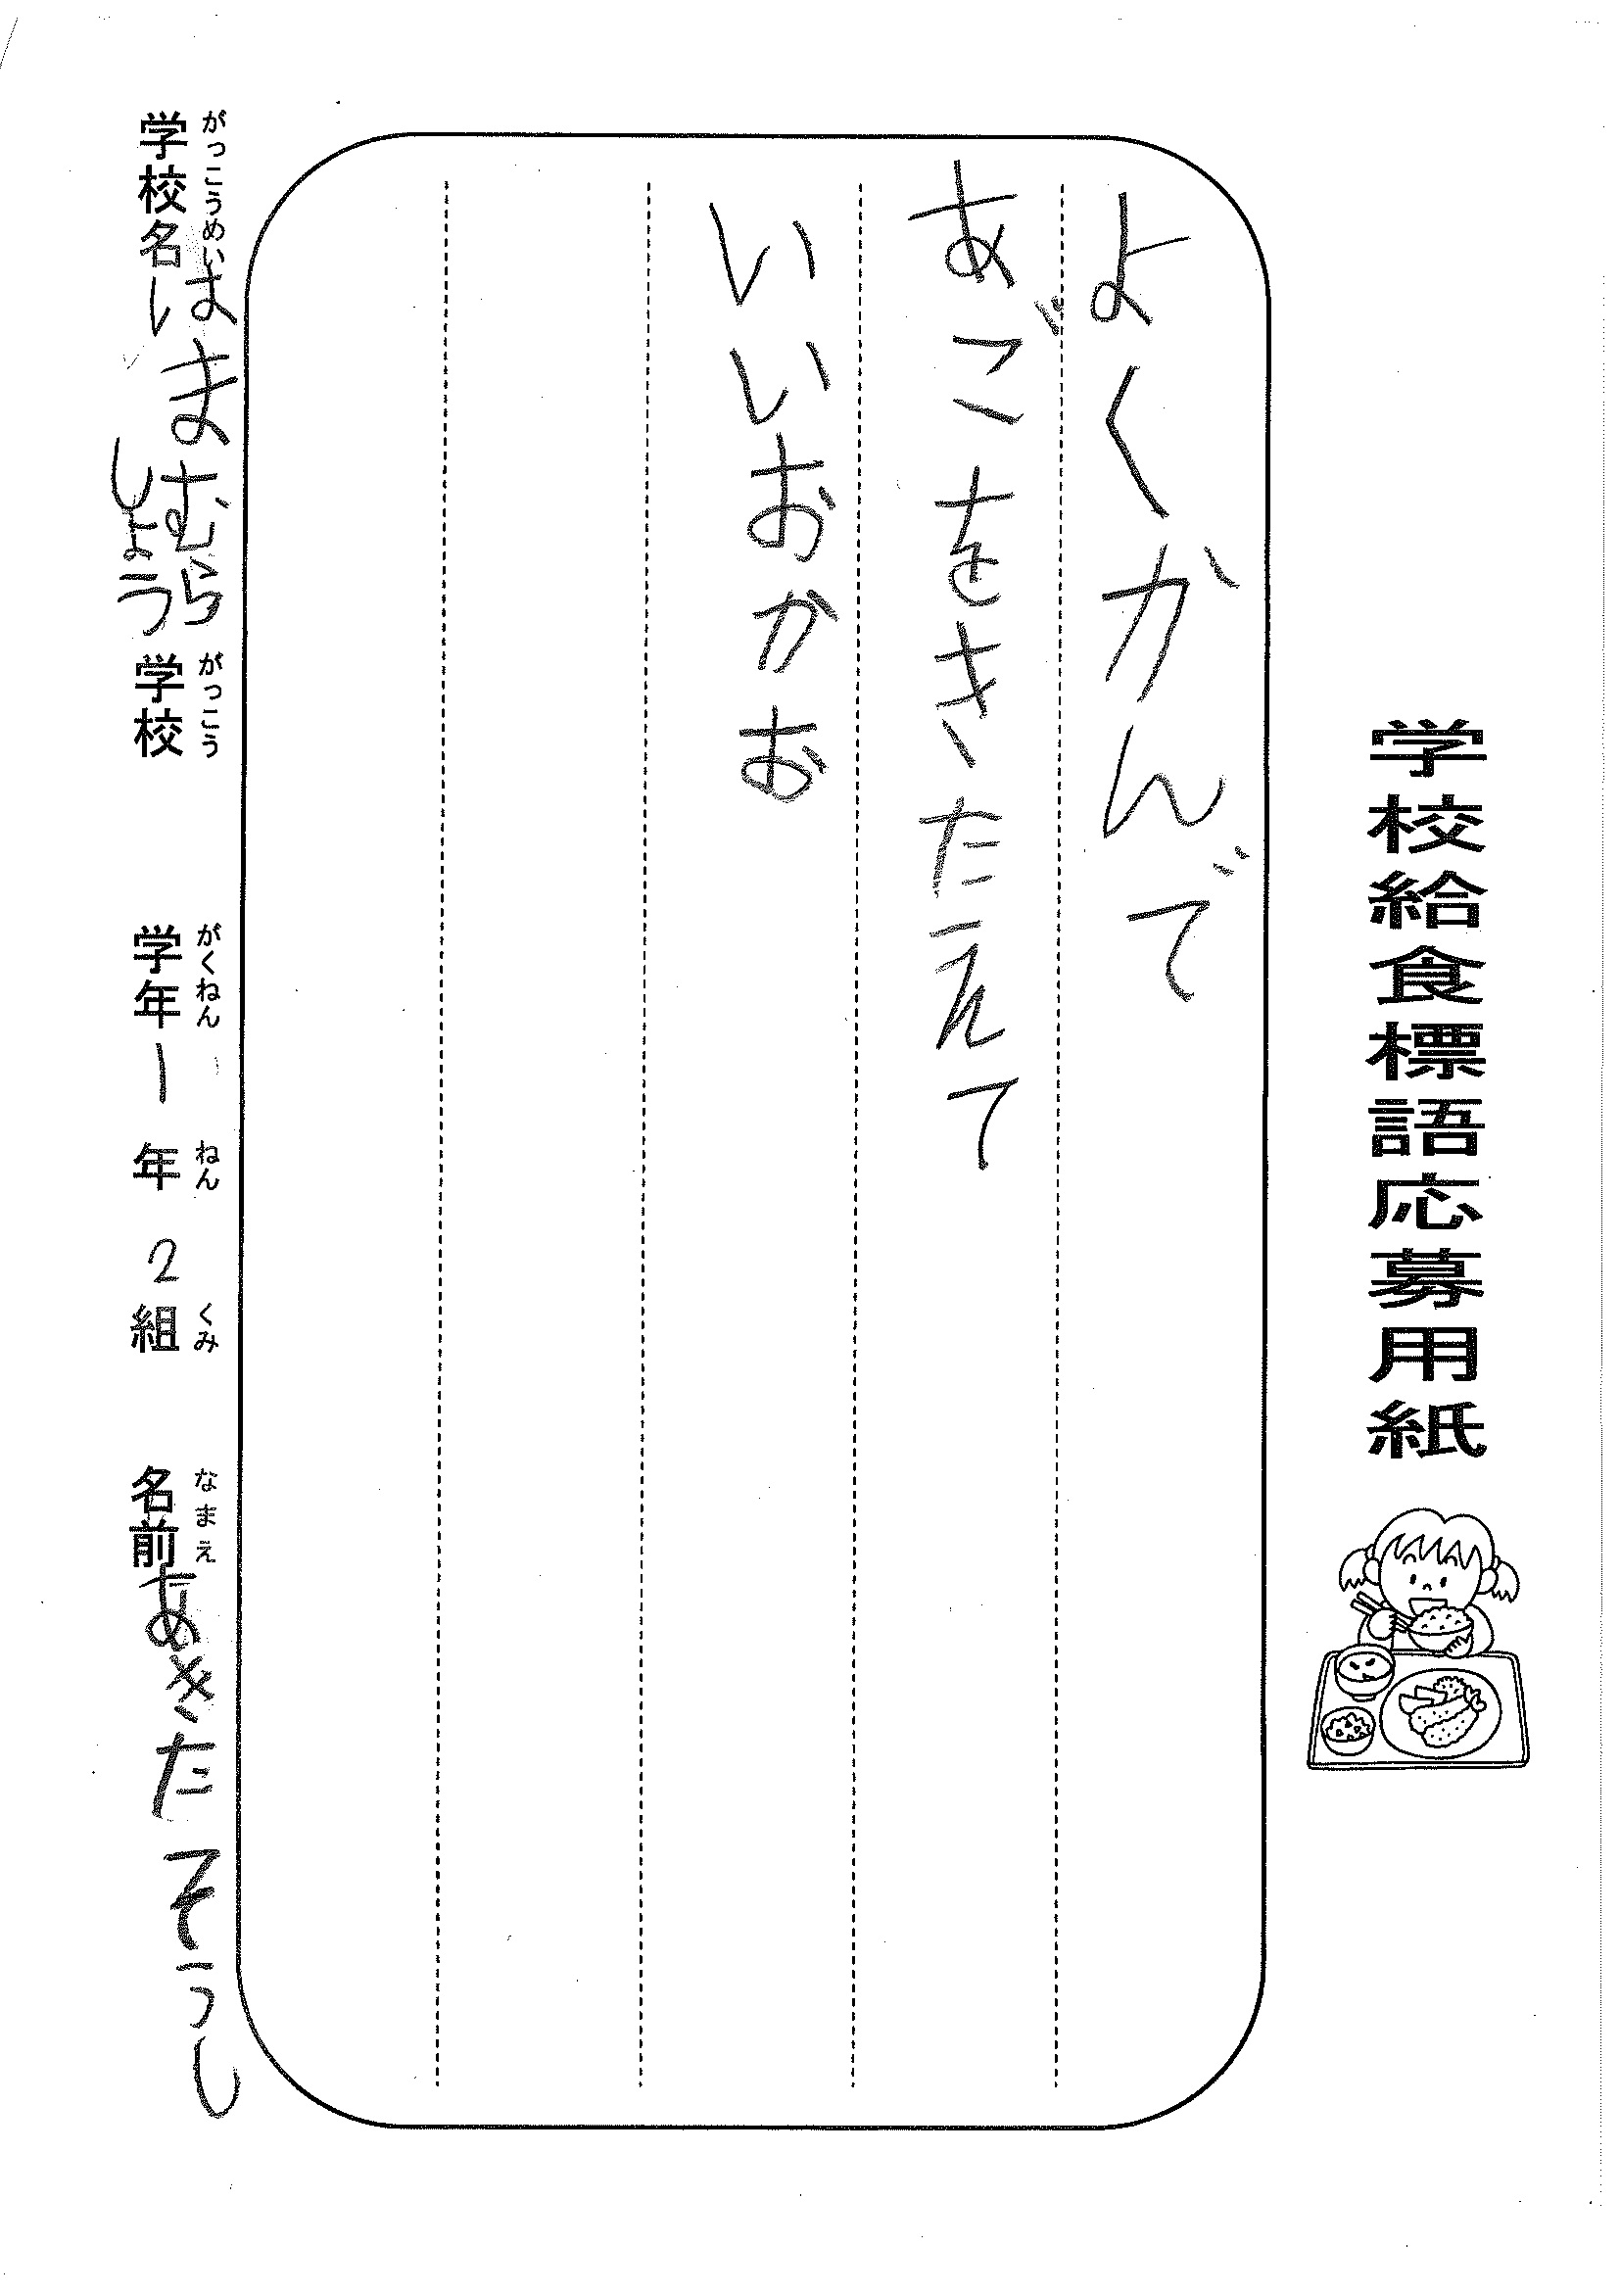 学校給食標語応募用紙
よくかんで
あごをきたえて
いいおかお
がっこうめい
学校名 いはまむら
しょう
がっこう
学校
がくねん
学年 1
ねん
年 2
くみ
組
なまえ
名前 あきた そうし